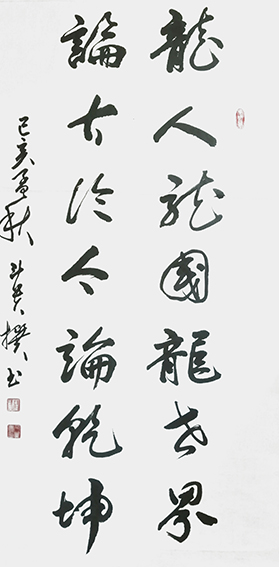 龍人龙國龍世界
論古论今論乾坤
己亥孟秋
書